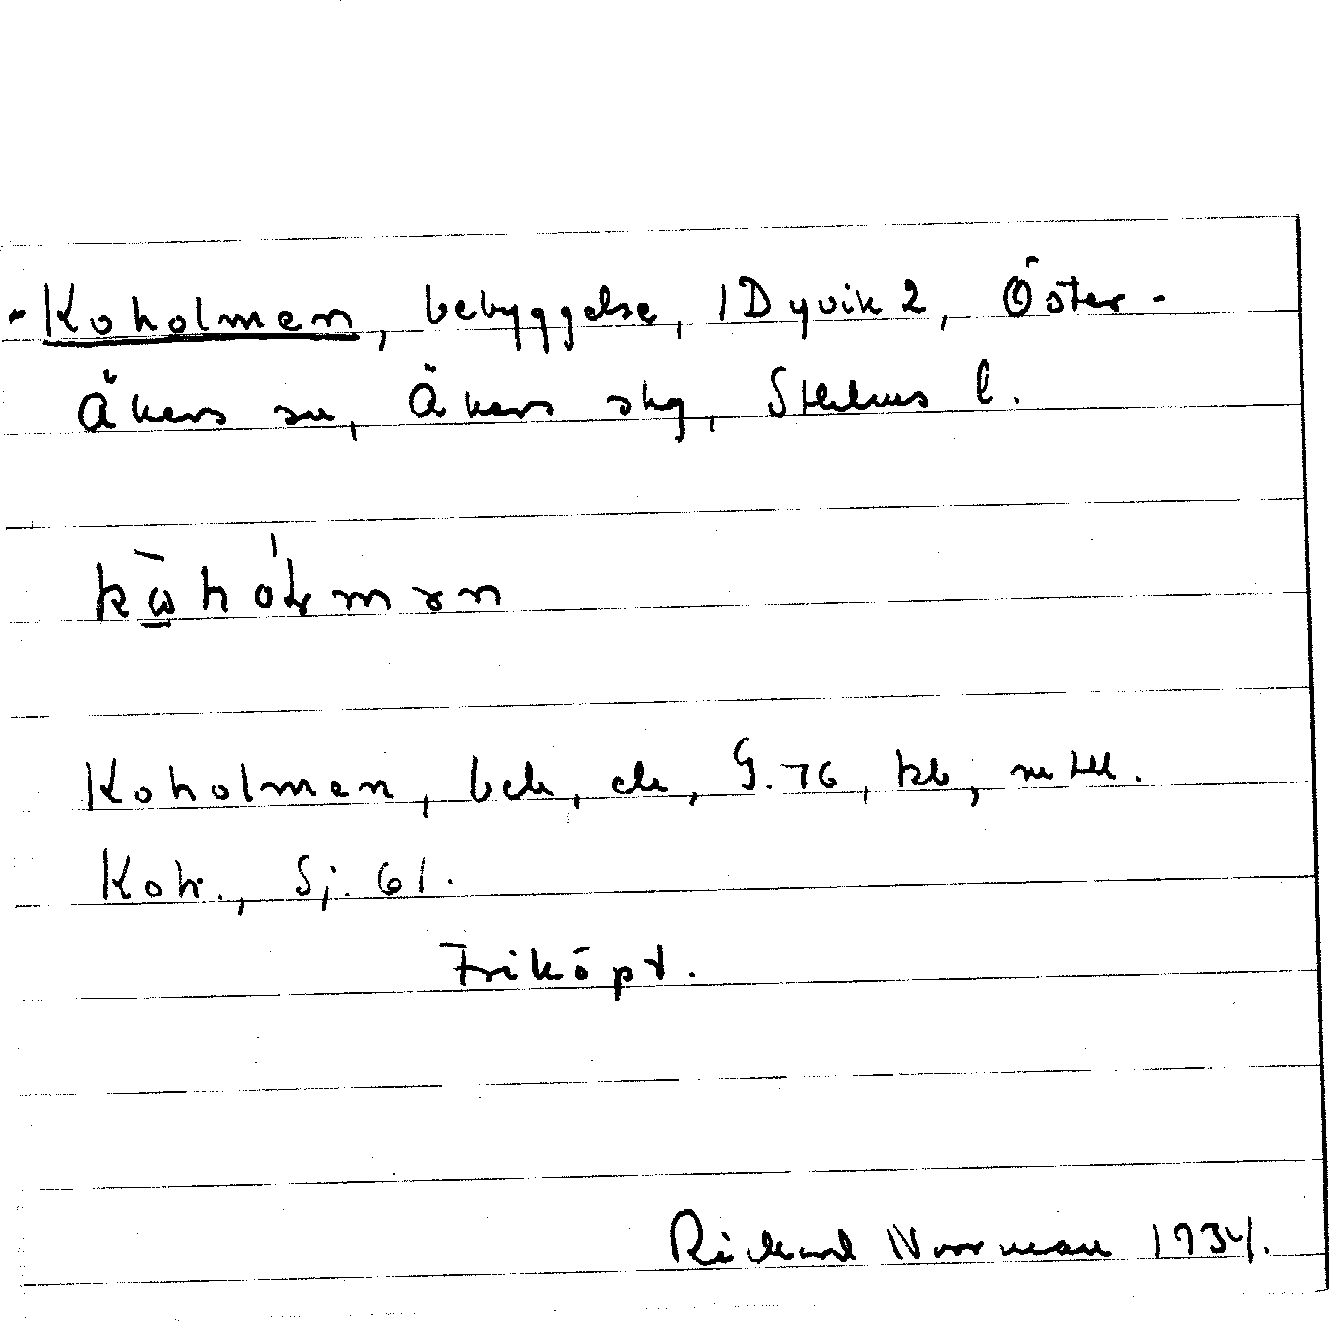 Koholmen, bebyggelse, 1 Dyvik 2, Öster-
Åkers sn, Åkers skg, Sthlms l.
Koholmen, bek, ek, G. 76, kb, mtll.
Koh., Sj. 61.
Friköpt.
Rickard Norrman 1934.